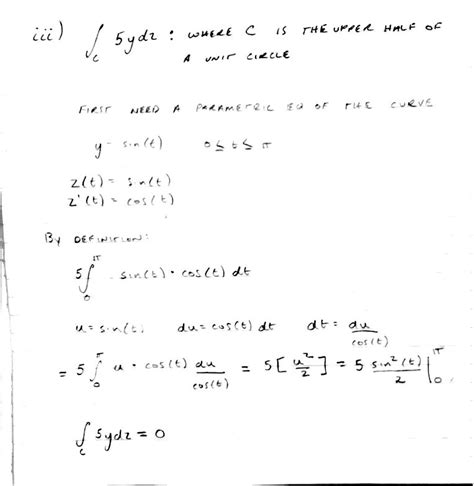 iii) ∫_C 5ydz : WHERE C IS THE UPPER HALF OF
A UNIT CIRCLE
FIRST NEED A PARAMETRIC EQ OF THE CURVE
y = sin(t) 0 ≤ t ≤ π
z(t) = sin(t)
z'(t) = cos(t)
By DEFINITION:
5∫_0^π sin(t) · cos(t) dt
u = sin(t) du = cos(t) dt dt = du/cos(t)
= 5∫_0^π u · cos(t) du/cos(t) = 5[u²/2] = 5 sin²(t)/2 |_0^π
∫_C 5ydz = 0